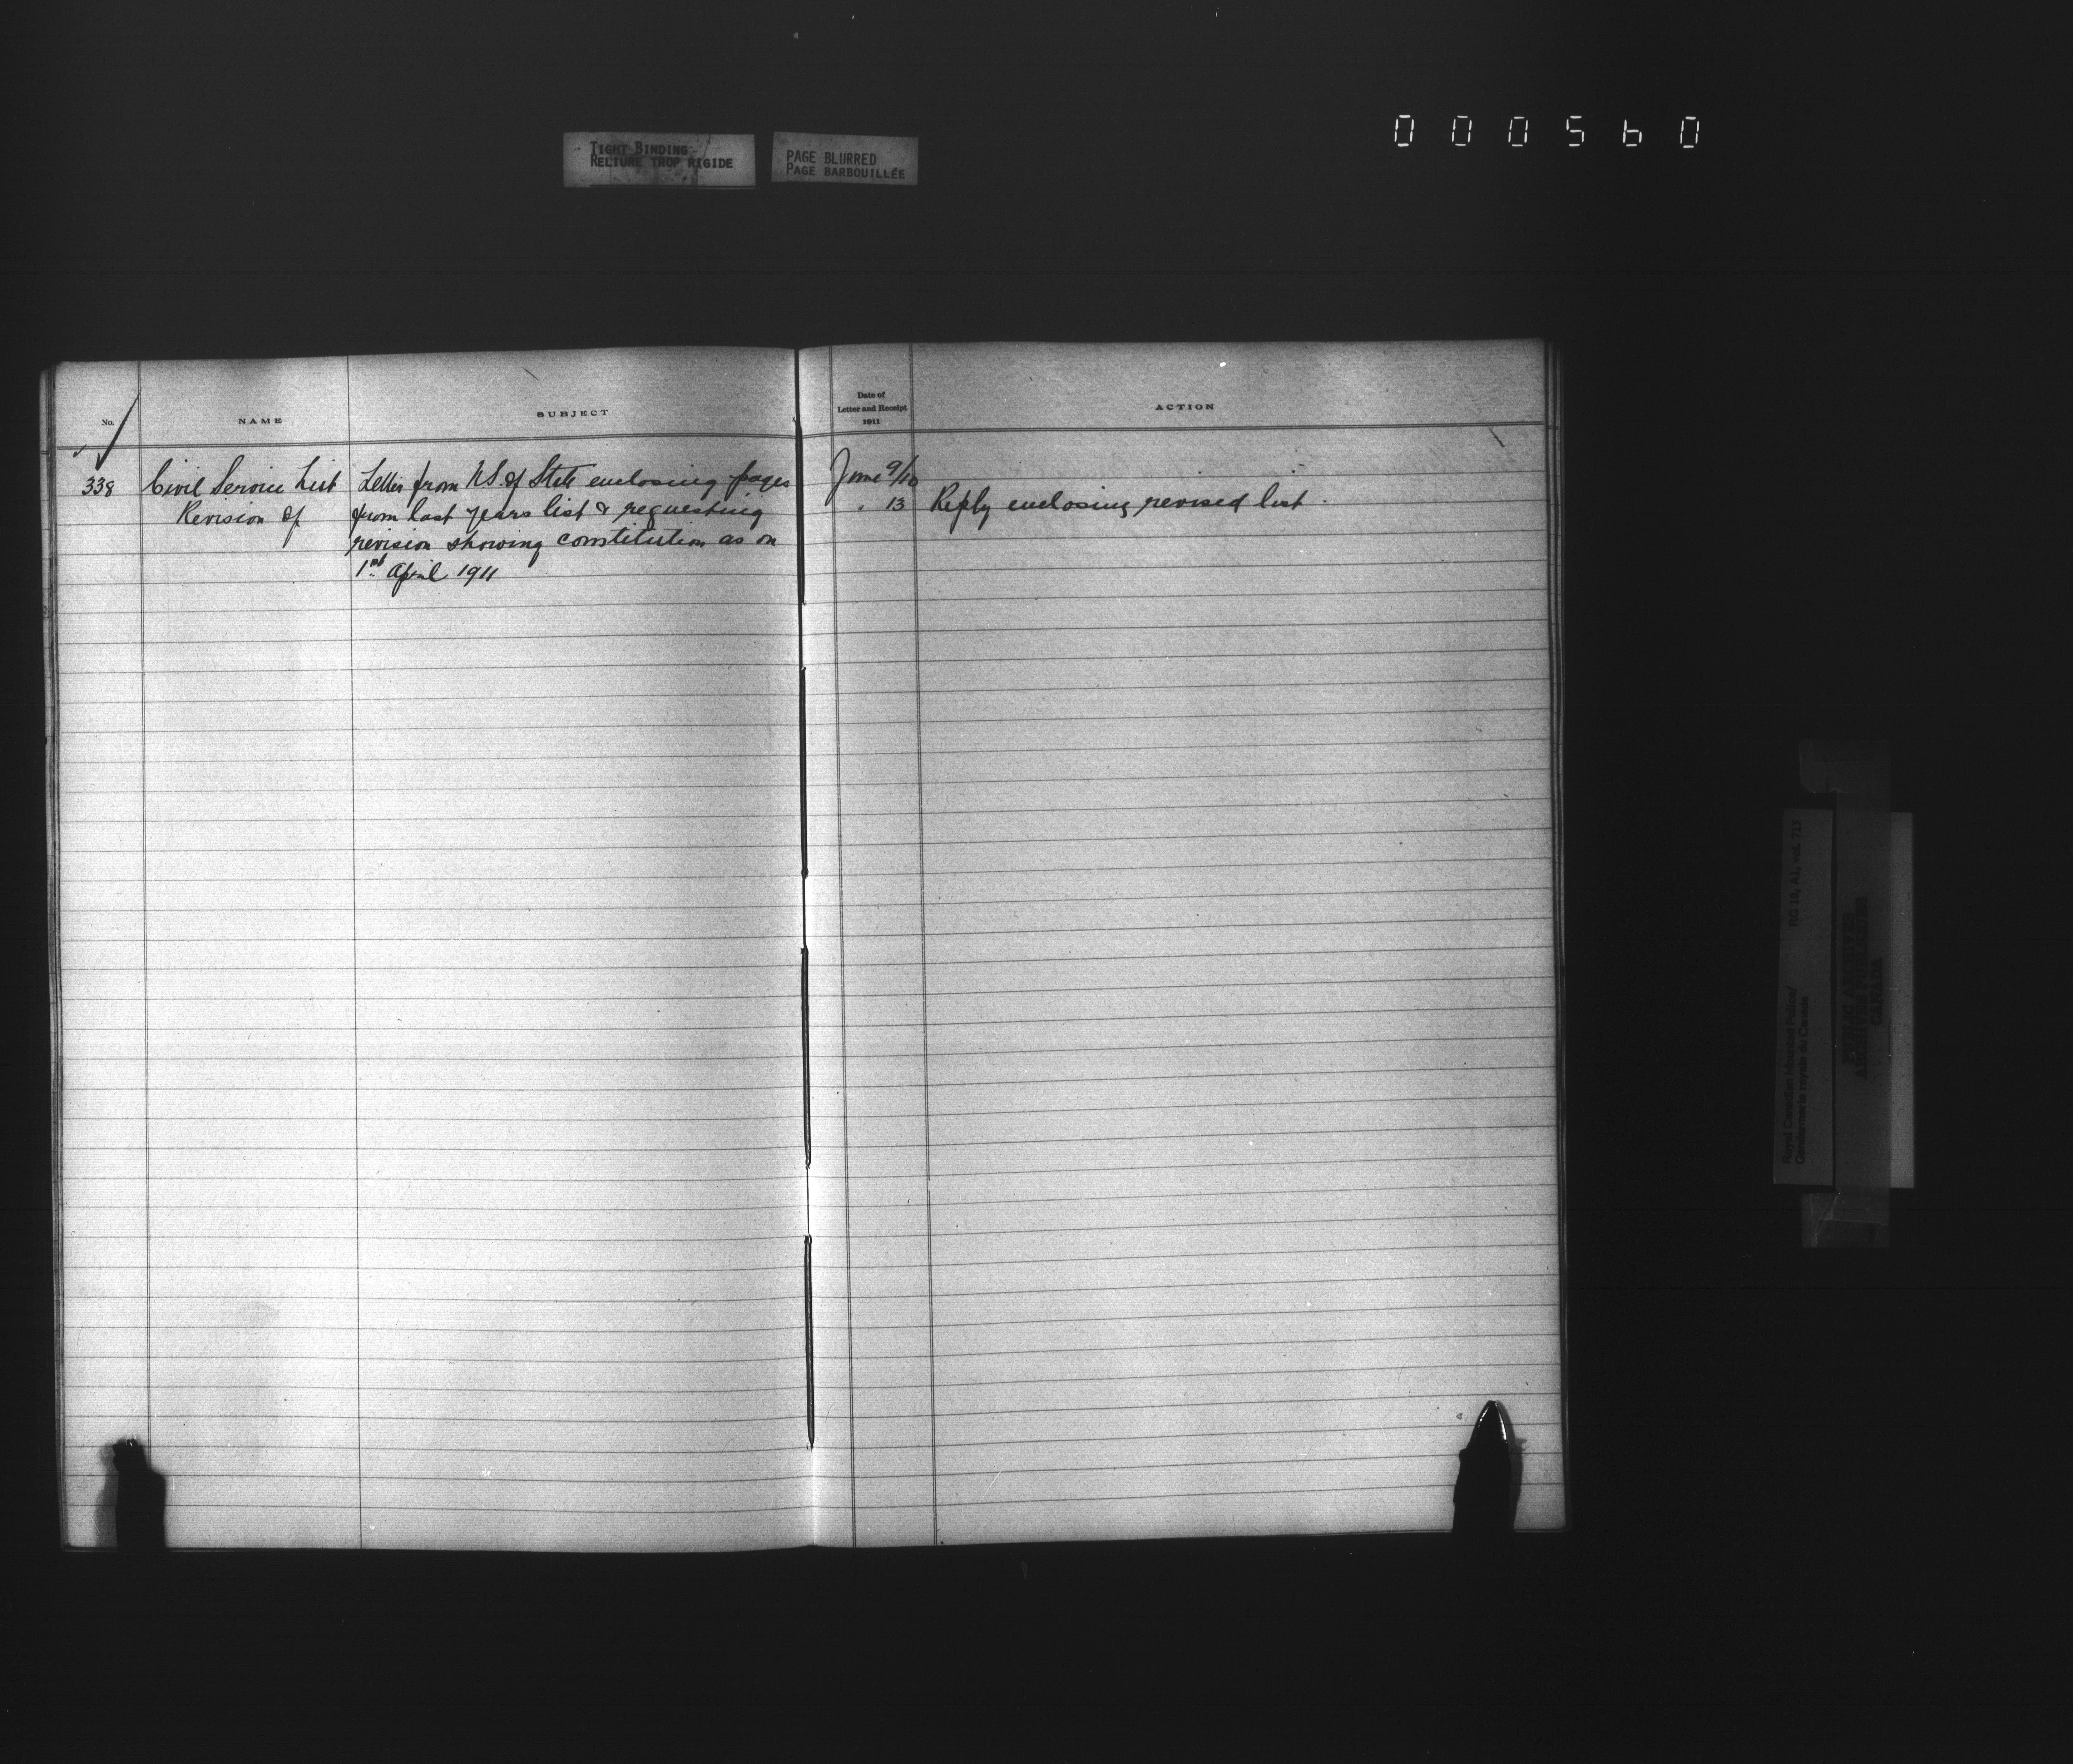 TIGHT BINDING
RELIURE TROP RIGIDE
PAGE BLURRED
PAGE BARBOUILLÉE
000560
No.
NAME
SUBJECT
Date of
Letter and Receipt
1911
ACTION
338 Civil Service List Letter from U.S. of State enclosing pages June 9/10
Revision of from last years list & requesting " 13 Reply enclosing revised list.
revision showing constitution as on
1st April 1911
Royal Canadian Mounted Police/ RG 18, A1, vol. 713
Gendarmerie royale du Canada
PUBLIC ARCHIVES
ARCHIVES PUBLIQUES
CANADA